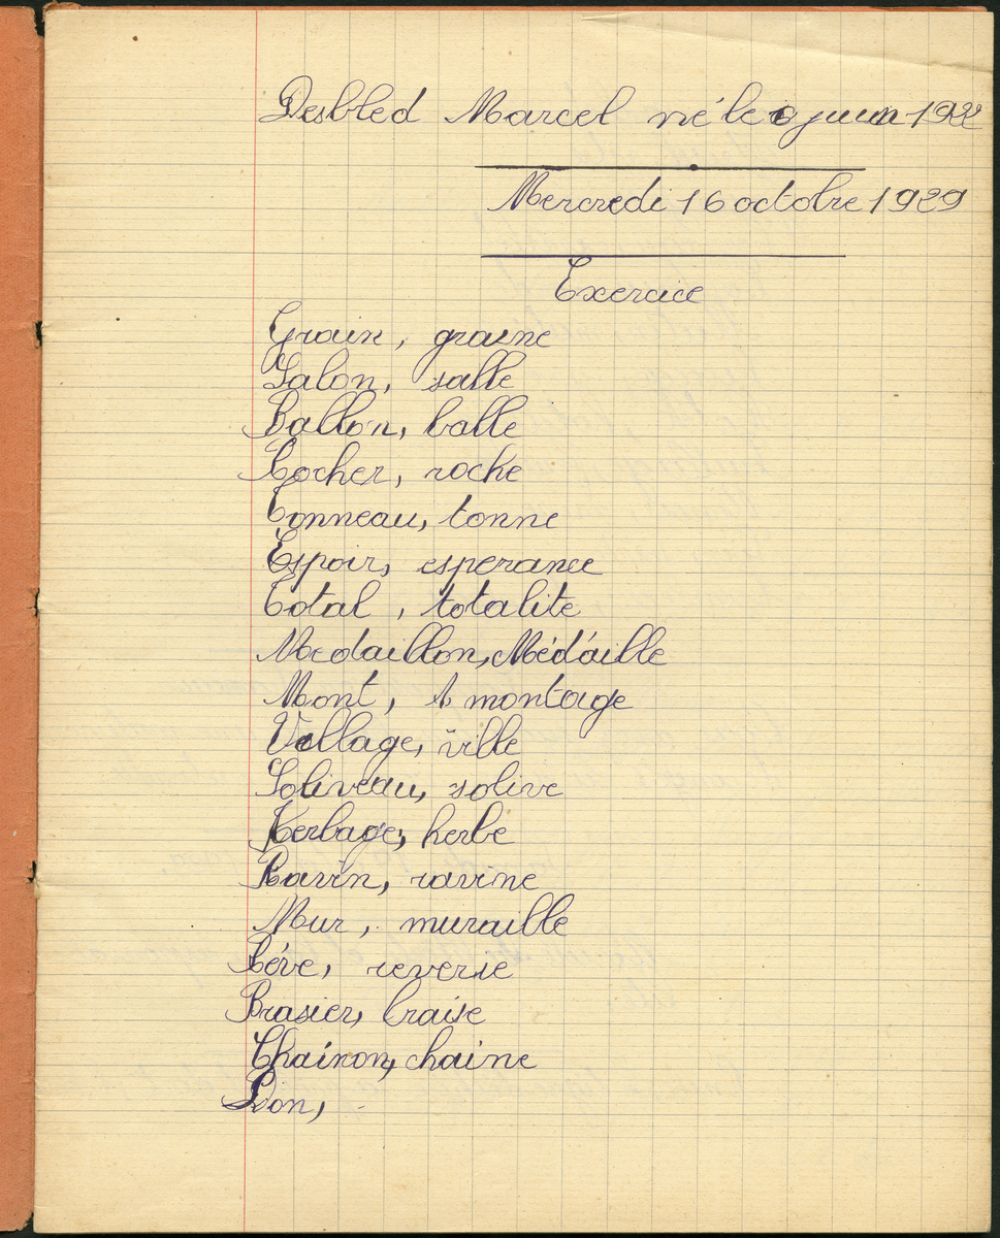 Desbled Marcel né le 9 juin 1922
Mercredi 16 octobre 1929
Exercice
Grain, graine
Salon, salle
Ballon, balle
Rocher, roche
Tonneau, tonne
Espoir, esperance
Total, totalite
Medaillon, Médaille
Mont, montage
Village, ville
Soliveau, solive
Herbage, herbe
Ravin, ravine
Mur, muraille
Réve, reverie
Brasier, braise
Chainon, chaine
Lion,